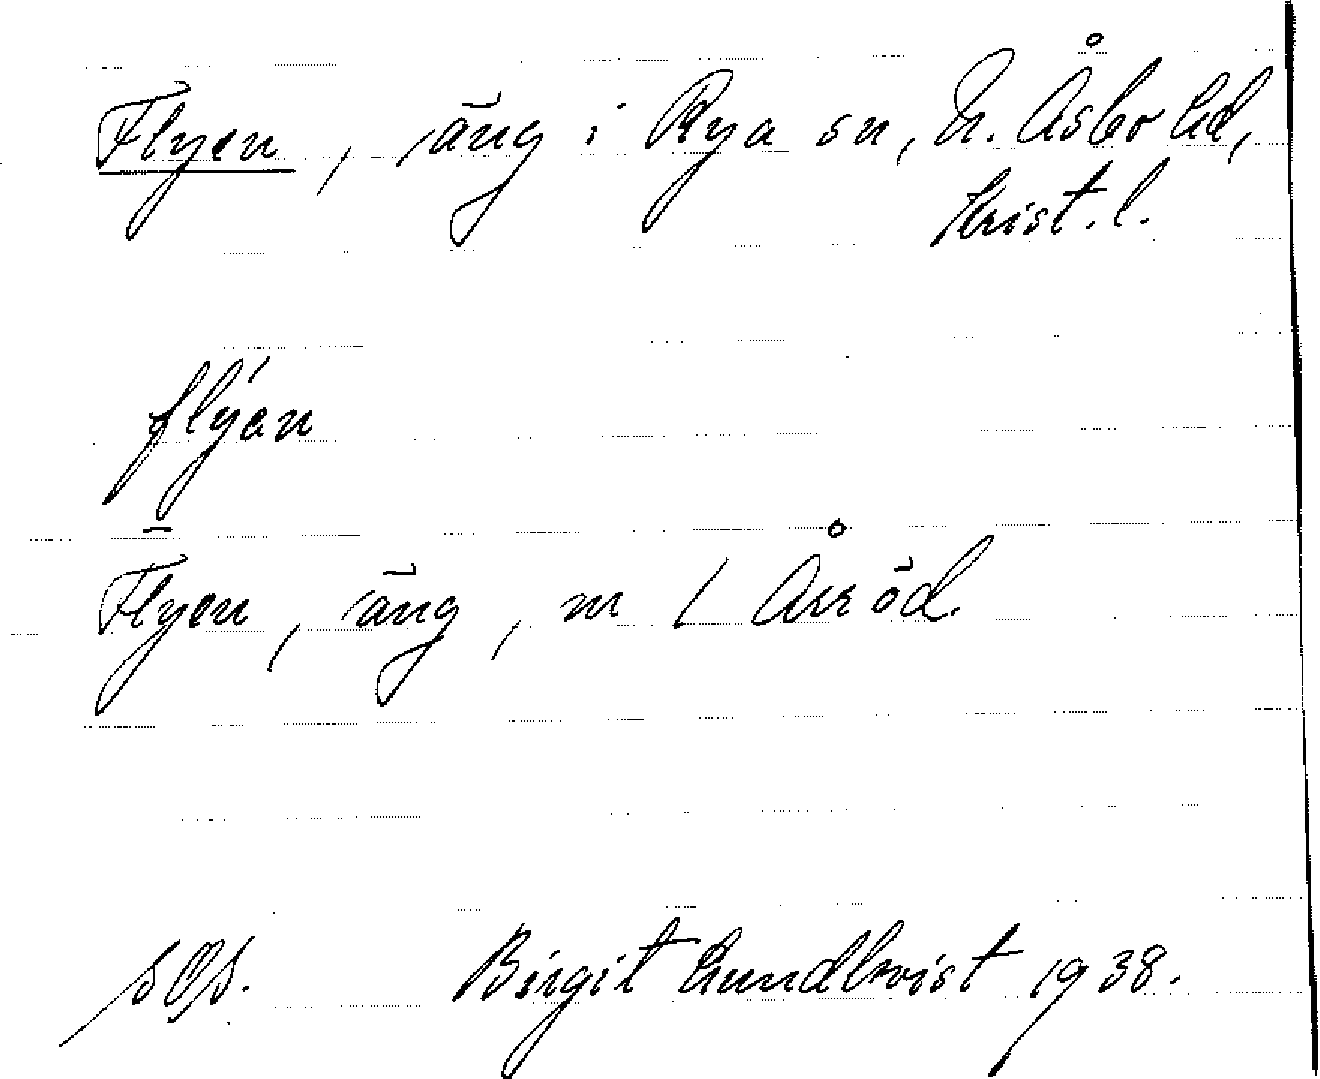 Flyen, äng i Rya sn, N. Åsbo hd,
Krist. l.
flýan
Flyen, äng, m / Arröd.
Birgit Lundkvist 1938.